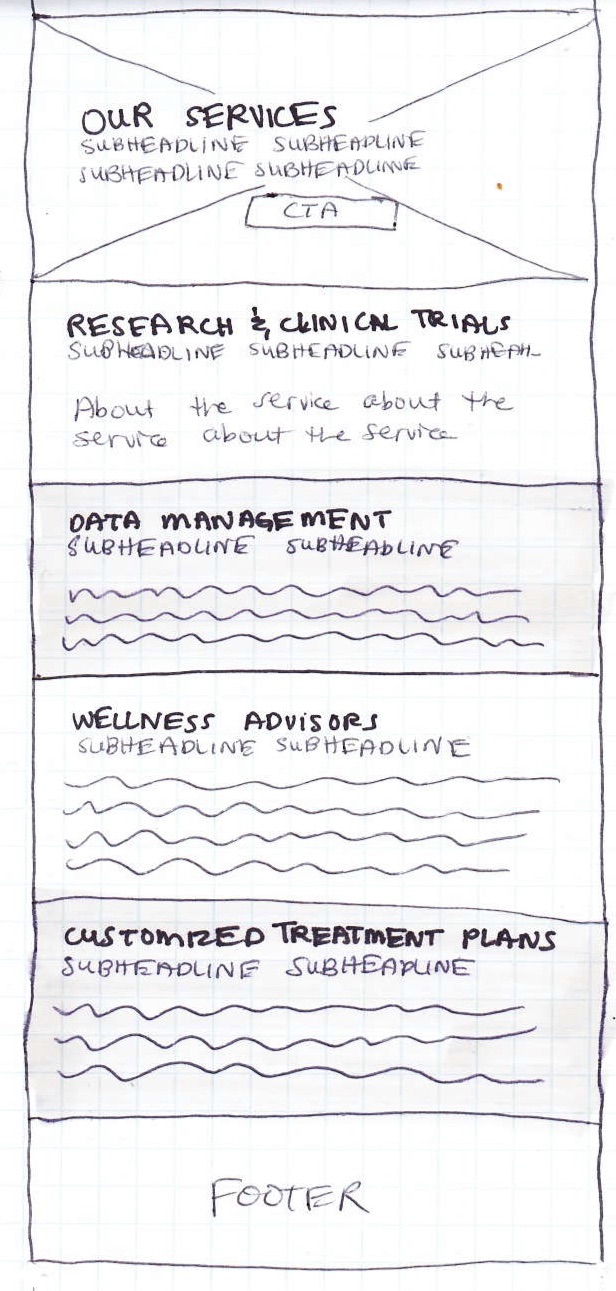 OUR SERVICES
SUBHEADLINE SUBHEADLINE
SUBHEADLINE SUBHEADLINE
CTA
RESEARCH & CLINICAL TRIALS
SUBHEADLINE SUBHEADLINE SUBHEAH
About the service about the
service about the service
DATA MANAGEMENT
SUBHEADLINE SUBHEADLINE
WELLNESS ADVISORS
SUBHEADLINE SUBHEADLINE
CUSTOMIZED TREATMENT PLANS
SUBHEADLINE SUBHEADLINE
FOOTER